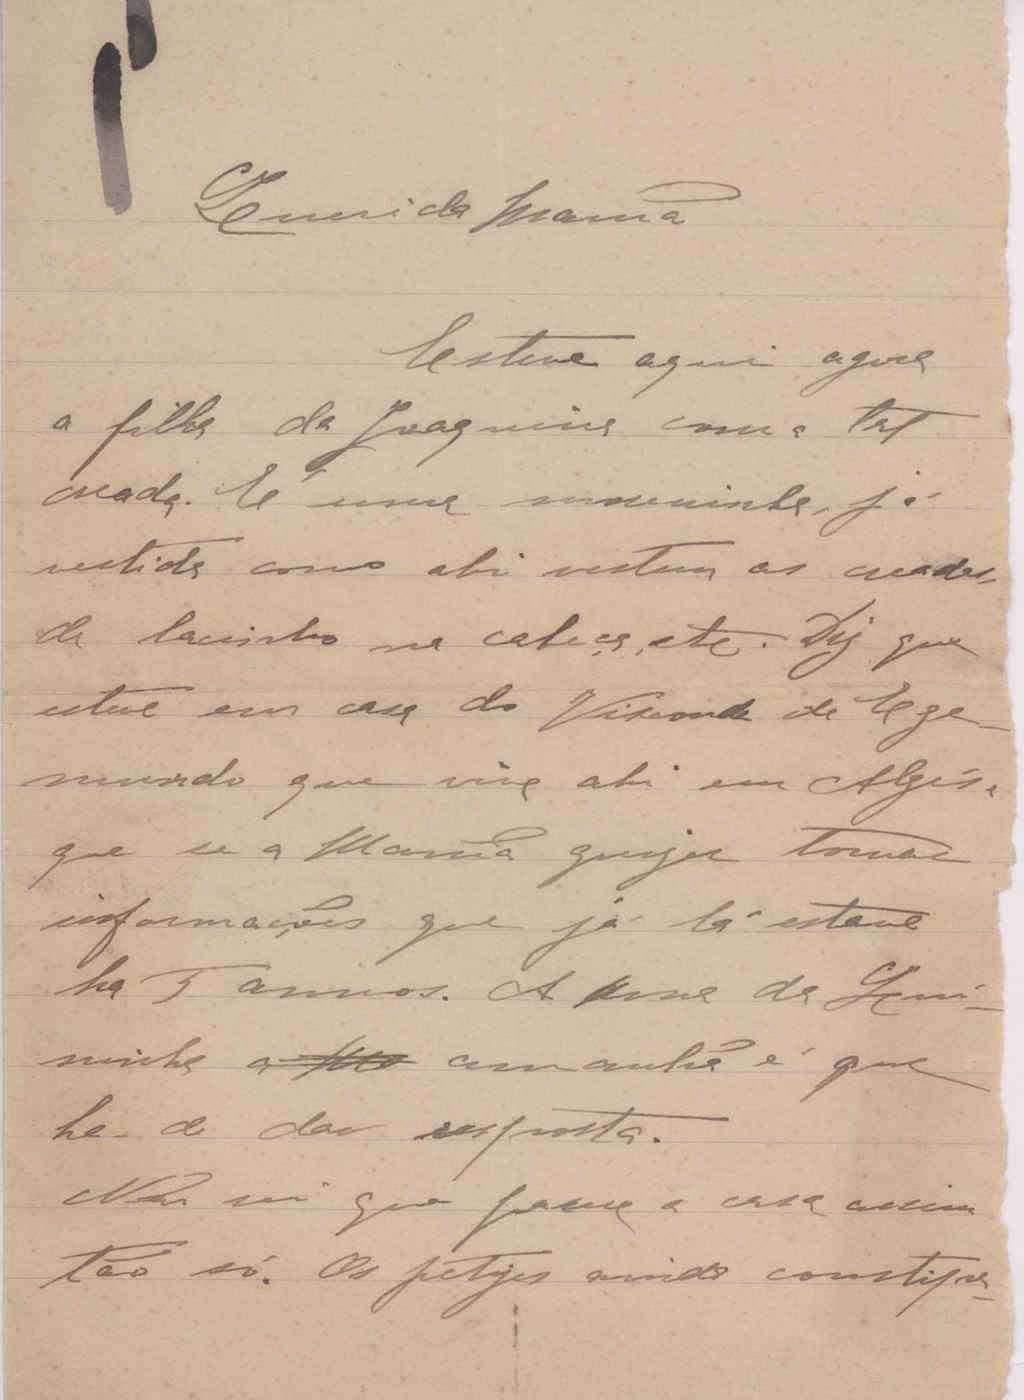 Querida Mamã
Esteve aqui agora
a filha da Joaquina com a tal
creada. É uma moreninha, já
vestida como ahi vestem as creadas,
de lacinho na cabeça, etc. Diz que
esteve em casa do Visconde de
mundo que vive ahi em Algés, e
que se a Mamã quizer tomar
informações que já lá esteve
ha 5 annos. A ama da Qui-
ninha a amanhã é que
ha-de dar resposta.
Não sei que parece a casa assim
tão só. Os petizes ainda constipa-